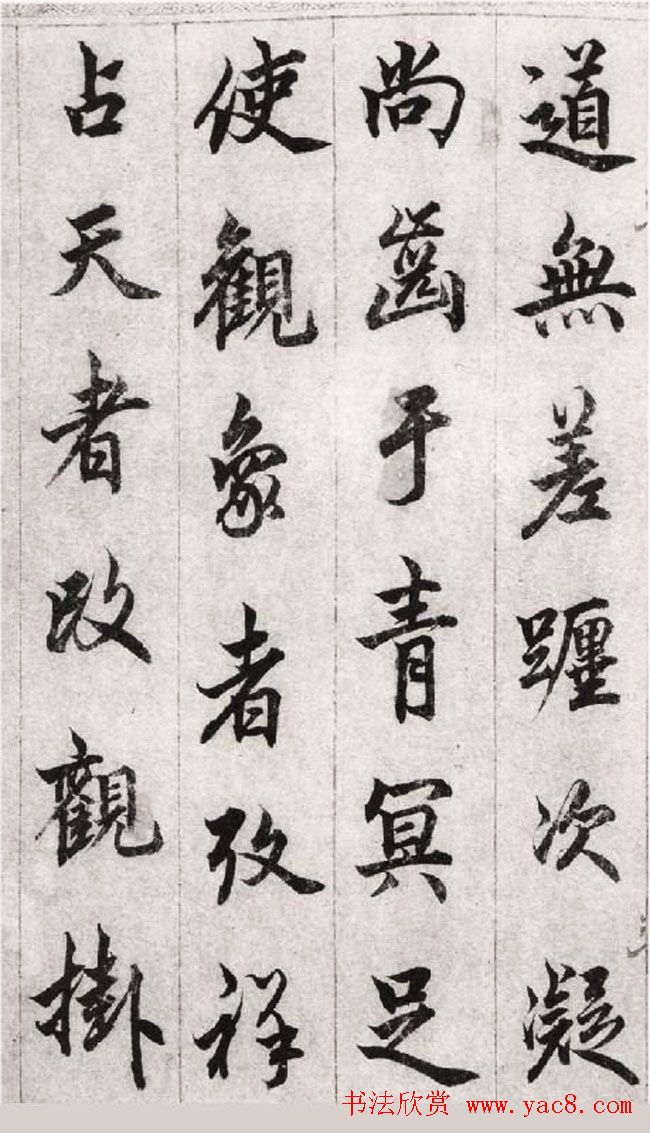 道無差躔次凝
尚齒于青冥足
使觀象者攷祥
占天者改觀掛
书法欣赏 www.yac8.com